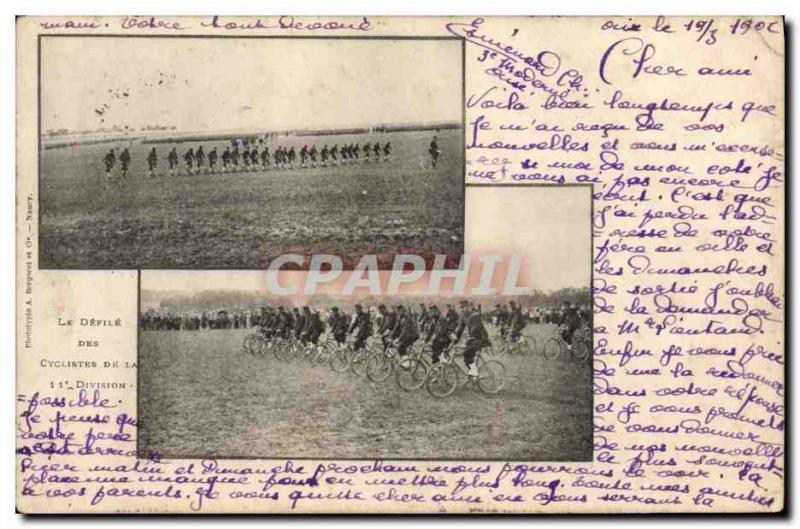 main. Votre tout dévoué
Oise le 19/3 1902
3e Moderne
Cher ami
Voilà bien longtemps que
je n'ai reçu de vos
nouvelles et vous m'excuse-
=rez si moi de mon coté je
ne vous ai pas encore
écrit. C'est que
j'ai perdu l'ad-
=resse de votre
père en ville et
les dimanches
de sortie j'oublie
de la demander
à Mr
Enfin je vous prie
de me la redonner
dans votre réponse
et je vous promets
de vous donner
de mes nouvelles
le plus souvent
possible.
Je pense que
votre père
hier matin et Dimanche prochain nous pourrons le voir. La
place me manque pour en mettre plus long. Toutes mes amitiés
à vos parents. Je vous quitte cher ami en vous serrant la
Phototypie A. Bergeret et Cie. — Nancy.
LE DÉFILÉ
DES
CYCLISTES DE LA
11e DIVISION
CPARPHIL